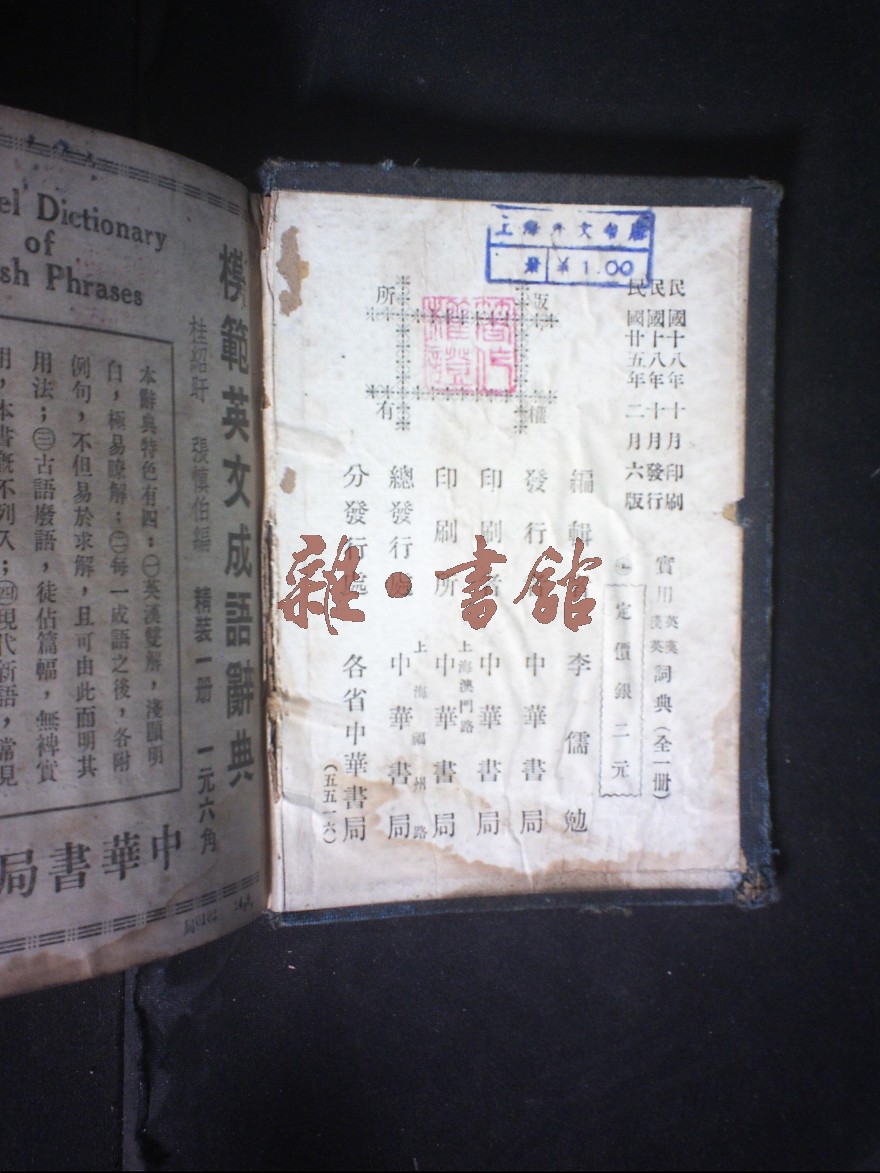 上海外文書店
¥1.00
民國十八年十月印刷
民國十八年十月發行
民國廿五年二月六版
實用英漢漢英詞典(全一冊)
定價銀二元
版權所有
編輯者 李儒勉
發行者 中華書局
印刷者 中華書局
上海澳門路
印刷所 中華書局
上海福州路
總發行處 中華書局
分發行處 各省中華書局
(五五一六)
雜·書館
el Dictionary
of
sh Phrases
模範英文成語辭典
桂紹盱 張慎伯編 精裝一册 一元六角
本辭典特色有四:㊀英漢雙解,淺顯明
白,極易瞭解;㊁每一成語之後,各附
例句,不但易於求解,且可由此而明其
用法;㊂古語廢語,徒佔篇幅,無裨實
用,本書概不列入;㊃現代新語,常見
中華書局